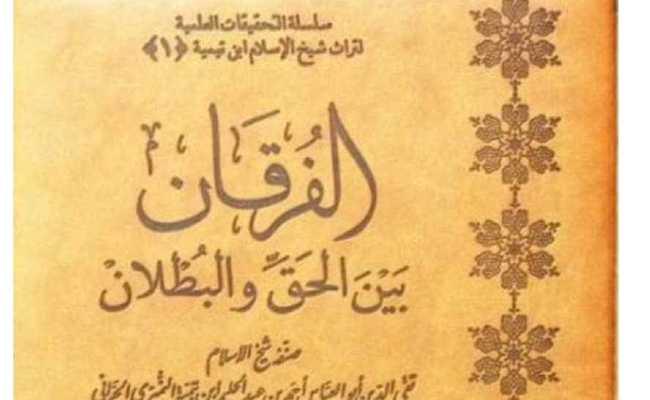 سلسلة التحقيقات العلمية
لتراث شيخ الإسلام ابن تيمية ﴿١﴾
الفُرقَان
بَيْنَ الحَقِّ والبُطْلَان
صنفه شيخ الإسلام
تقي الدين أبو العباس أحمد بن عبد الحليم ابن تيمية النميري الحراني